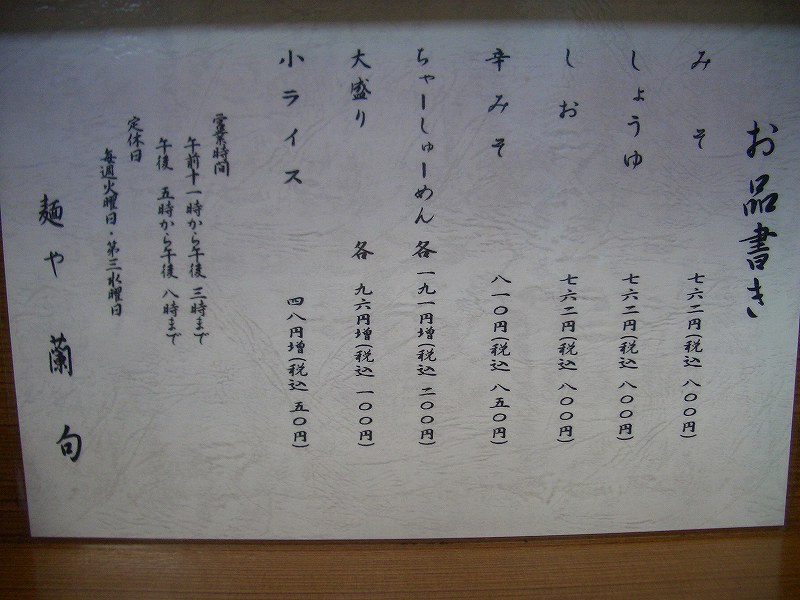 お品書き
みそ 七六二円(税込 八００円)
しょうゆ 七六二円(税込 八００円)
しお 七六二円(税込 八００円)
辛みそ 八一０円(税込 八五０円)
ちゃーしゅーめん 各 一九一円増(税込 二００円)
大盛り 各 九六円増(税込 一００円)
小ライス 四八円増(税込 五０円)
営業時間
午前十一時から午後 三時まで
午後 五時から午後 八時まで
定休日
毎週火曜日・第三水曜日
麺や 蘭句